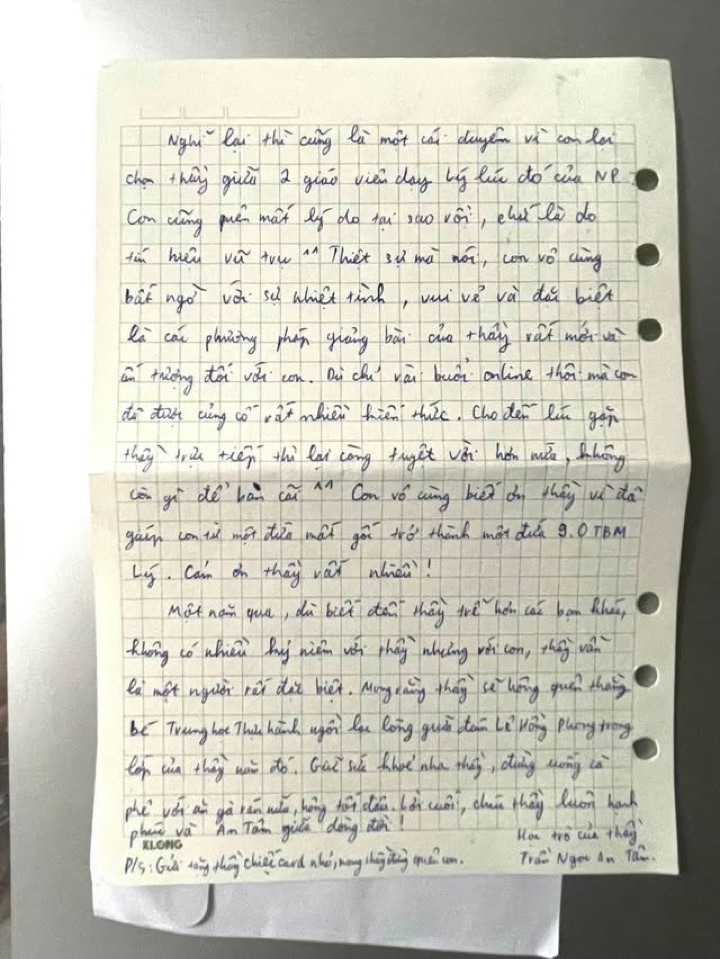 Nghĩ lại thì cũng là một cái duyên vì con lại
chọn thầy giữa 2 giáo viên dạy Lý lúc đó của NP.
Con cũng quên mất lý do tại sao rồi, chắc là do
tín hiệu vũ trụ ^^ Thiệt sự mà nói, con vô cùng
bất ngờ với sự nhiệt tình, vui vẻ và đặc biệt
là các phương pháp giảng bài của thầy rất mới và
ấn tượng đối với con. Dù chỉ vài buổi online thôi mà con
đã được củng cố rất nhiều kiến thức. Cho đến lúc gặp
thầy trực tiếp thì lại càng tuyệt vời hơn nữa, không
còn gì để bàn cãi ^^ Con vô cùng biết ơn thầy vì đã
giúp con từ một đứa mất gốc trở thành một đứa 9.0 TBM
Lý. Cảm ơn thầy rất nhiều!
Một năm qua, dù biết đến thầy trễ hơn các bạn khác,
không có nhiều kỷ niệm với thầy nhưng với con, thầy vẫn
là một người rất đặc biệt. Mong rằng thầy sẽ hông quên thằng
bé Trung học Thực hành ngồi lạc lõng giữa đám Lê Hồng Phong trong
lớp của thầy năm đó. Giữ sức khoẻ nha thầy, đừng uống cà
phê với ăn gà rán nữa, hông tốt đâu. Lời cuối, chúc thầy luôn hạnh
phúc và An Tâm giữa dòng đời!
KLONG
Học trò của thầy
P/s: Gửi tặng thầy chiếc card nhỏ, mong thầy đừng quên con.
Trần Ngọc An Tâm.